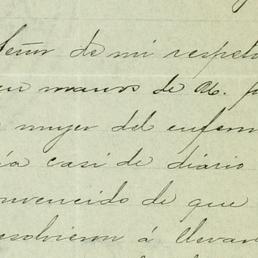 Señor de mi respeto
en manos de U. p
mujer del enferm
ía casi de diario
nvencido de que
esolvieron á llevar